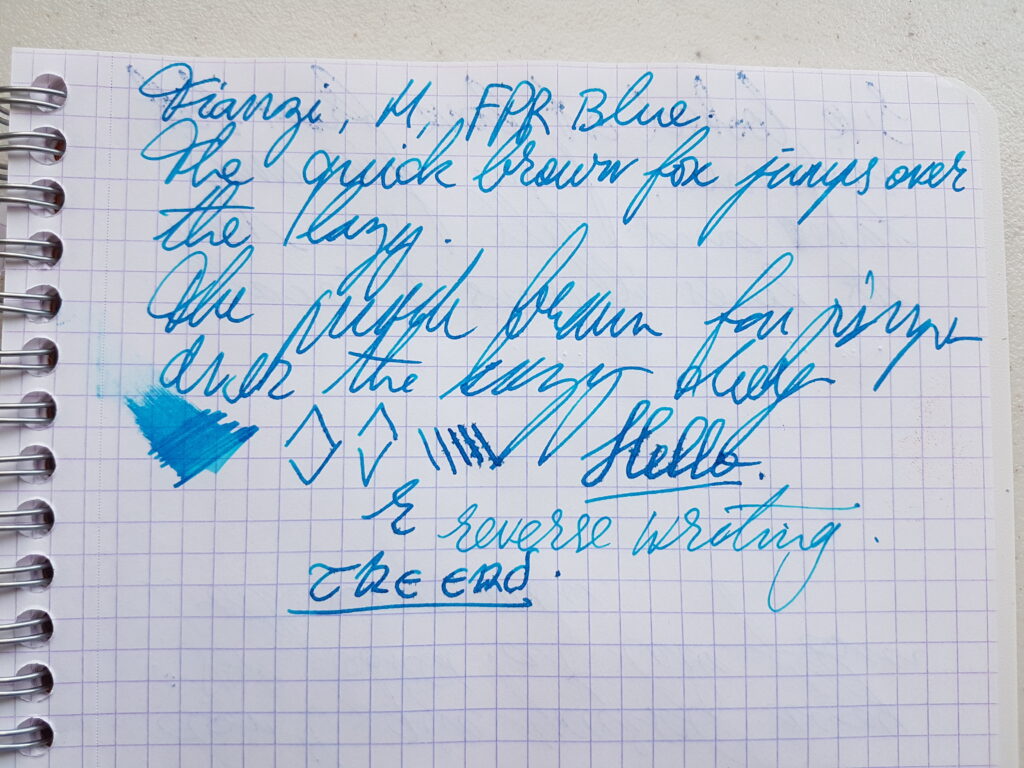 Tianzi, M, FPR Blue.
The quick brown fox jumps over
the lazy.
The quick brown fox jumps
over the lazy
Hello.
r reverse writing.
THE END.